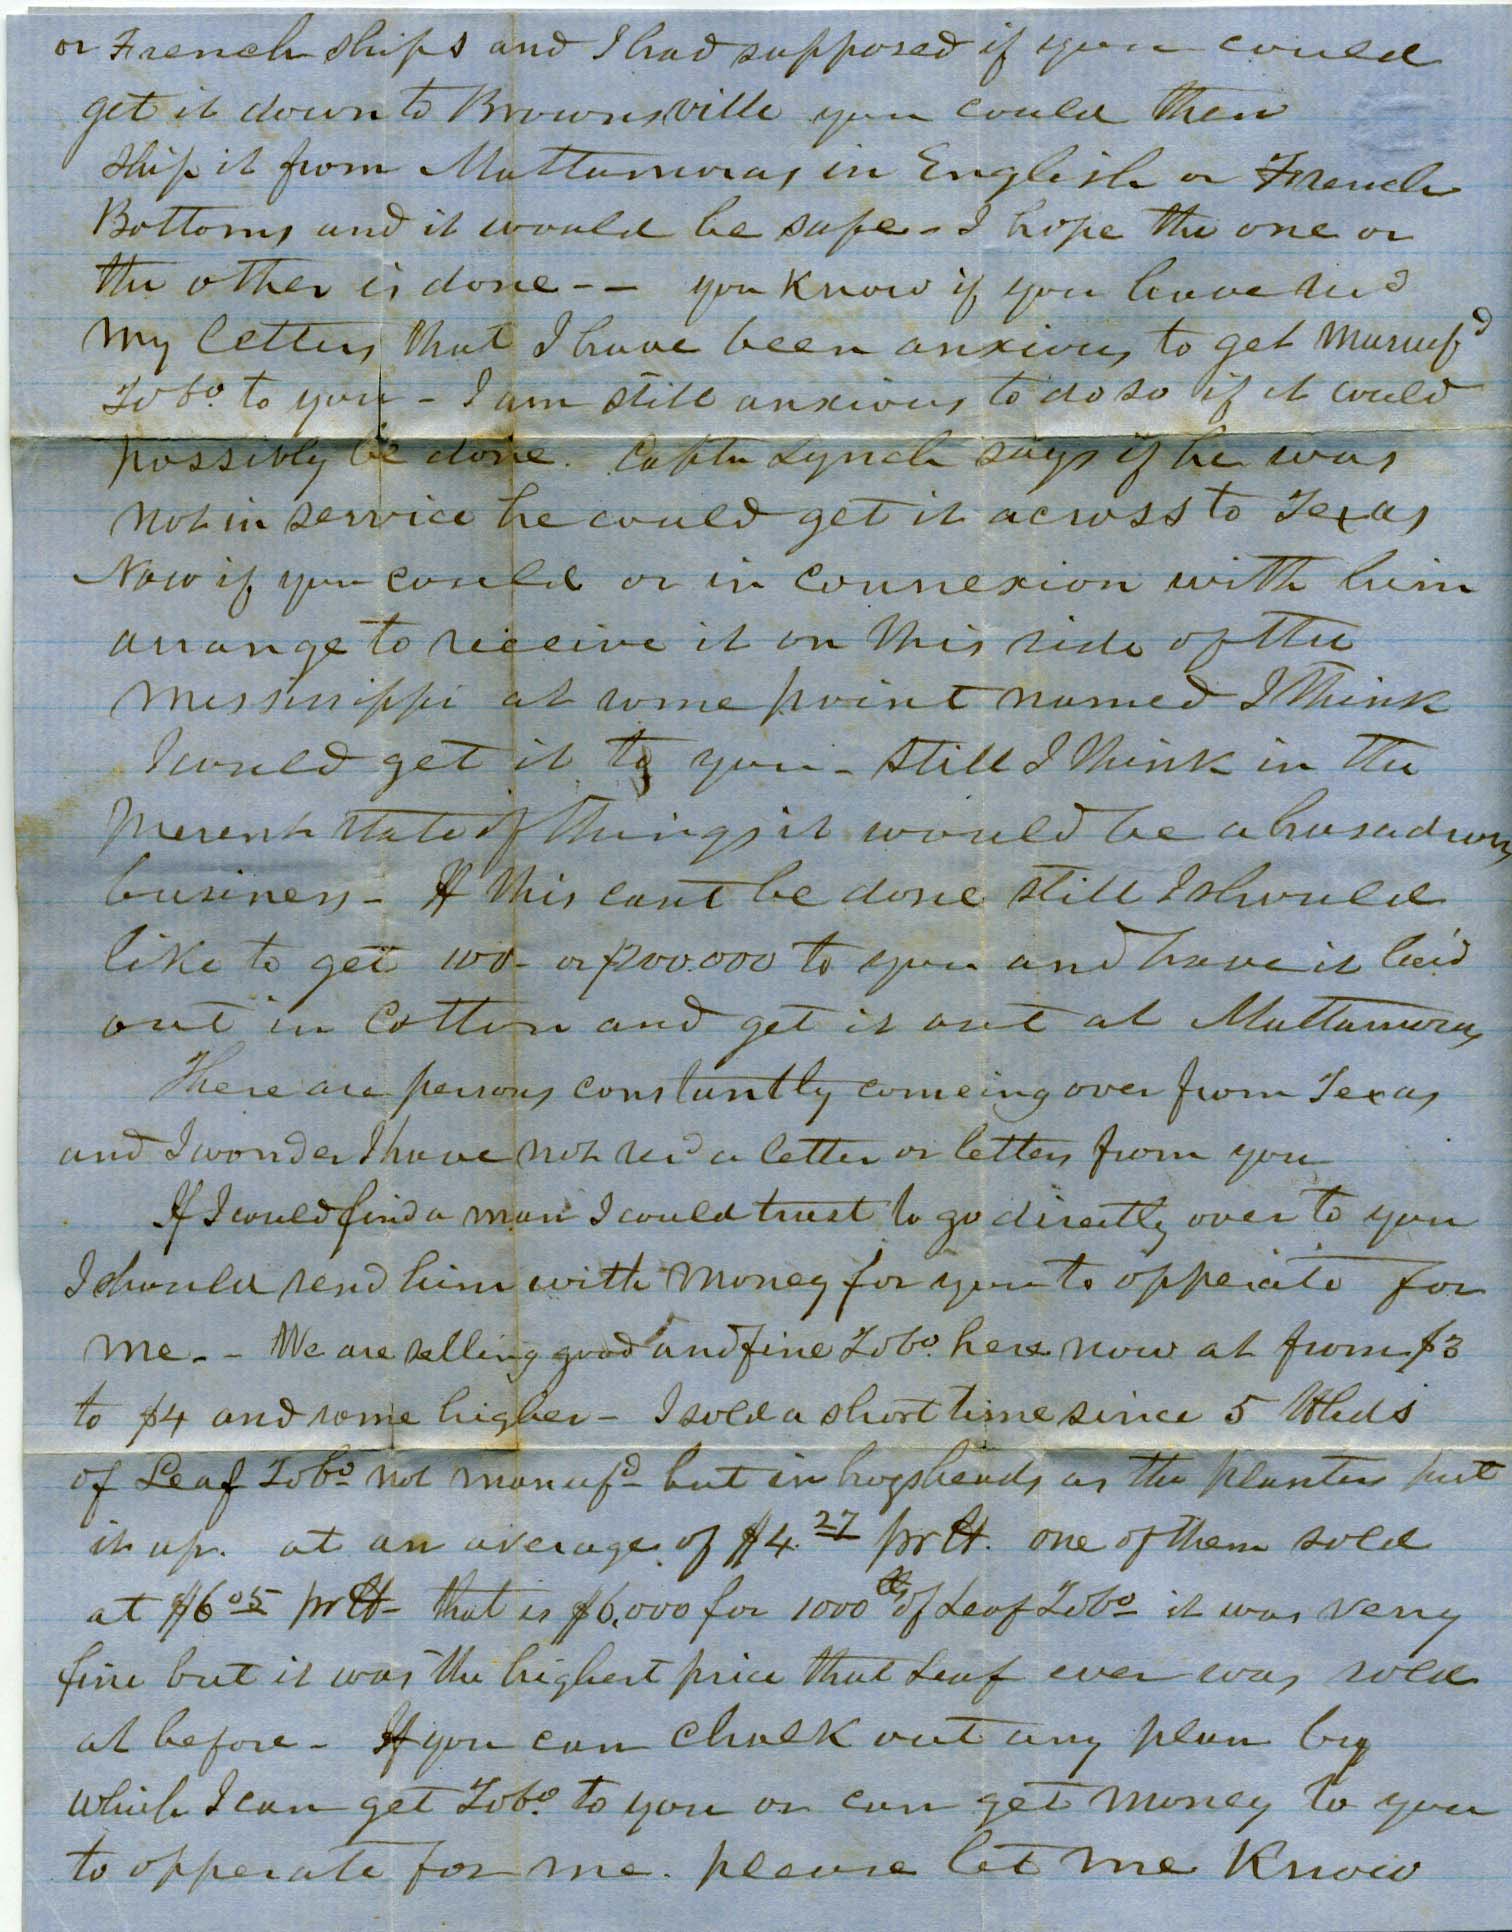 or French ships and I had supposed if you could
get it down to Brownsville you could then
ship it from Mattamoras in English or French
Bottoms and it would be safe - I hope the one or
the other is done - - you know if you have recd
my letters that I have been anxious to get Manufd
Tobo. to you - I am still anxious to do so if it could
possibly be done. Captn Lynch says if he was
not in service he could get it across to Texas
Now if you could or in connexion with him
arrange to receive it on this side of the
Mississippi at some point named I think
I could get it to you - still I think in the
present state of things it would be a hasadrous
business - If this cant be done still I should
like to get 100- or $200.000 to you and have it laid
out in cotton and get it out at Mattamoras
There are persons constantly comeing over from Texas
and I wonder I have not recd a letter or letters from you
If I could find a man I could trust to go directly over to you
I should send him with money for you to opperate for
me. - We are selling good and fine Tobo. here now at from $3
to $4 and some higher - I sold a short time since 5 Hhds
of Leaf Tobo not manufd but in hogsheads as the planters put
it up. at an average of $4.27 pr lb. one of them sold
at $6 05 pr lb - that is $6,000 for 1000 lbs of Leaf Tobo it was very
fine but it was the highest price that Leaf ever was sold
at before - If you can chalk out any plan by
which I can get Tobo. to you or can get money to you
to opperate for me. please let me know